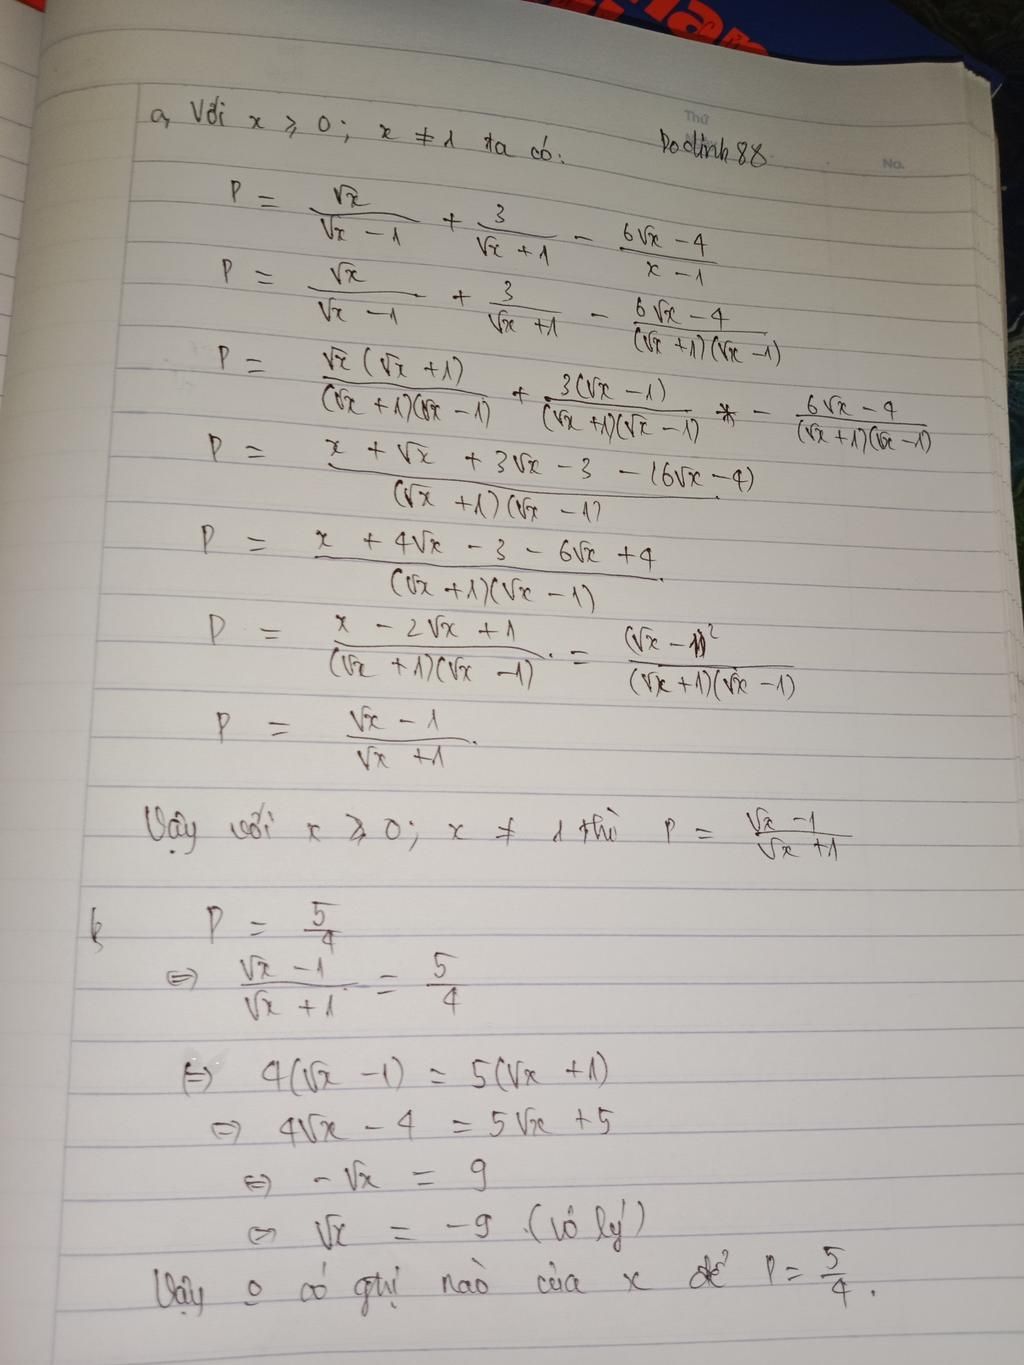 Man
Thứ
No.
a, Với x ⩾ 0 ; x ≠ 1 ta có. Dodinh88
P = √x/(√x − 1) + 3/(√x + 1) − (6√x − 4)/(x − 1)
P = √x/(√x − 1) + 3/(√x + 1) − (6√x − 4)/((√x + 1)(√x − 1))
P = √x(√x + 1)/((√x + 1)(√x − 1)) + 3(√x − 1)/((√x + 1)(√x − 1)) − (6√x − 4)/((√x + 1)(√x − 1))
P = (x + √x + 3√x − 3 − (6√x − 4))/((√x + 1)(√x − 1))
P = (x + 4√x − 3 − 6√x + 4)/((√x + 1)(√x − 1))
P = (x − 2√x + 1)/((√x + 1)(√x − 1)) = (√x − 1)²/((√x + 1)(√x − 1))
P = (√x − 1)/(√x + 1).
Vậy với x ⩾ 0 ; x ≠ 1 thì P = (√x − 1)/(√x + 1)
b, P = 5/4
⇔ (√x − 1)/(√x + 1) = 5/4
⇔ 4(√x − 1) = 5(√x + 1)
⇔ 4√x − 4 = 5√x + 5
⇔ −√x = 9
⇔ √x = −9 (vô lý)
Vậy o có ghị nào của x để P = 5/4.